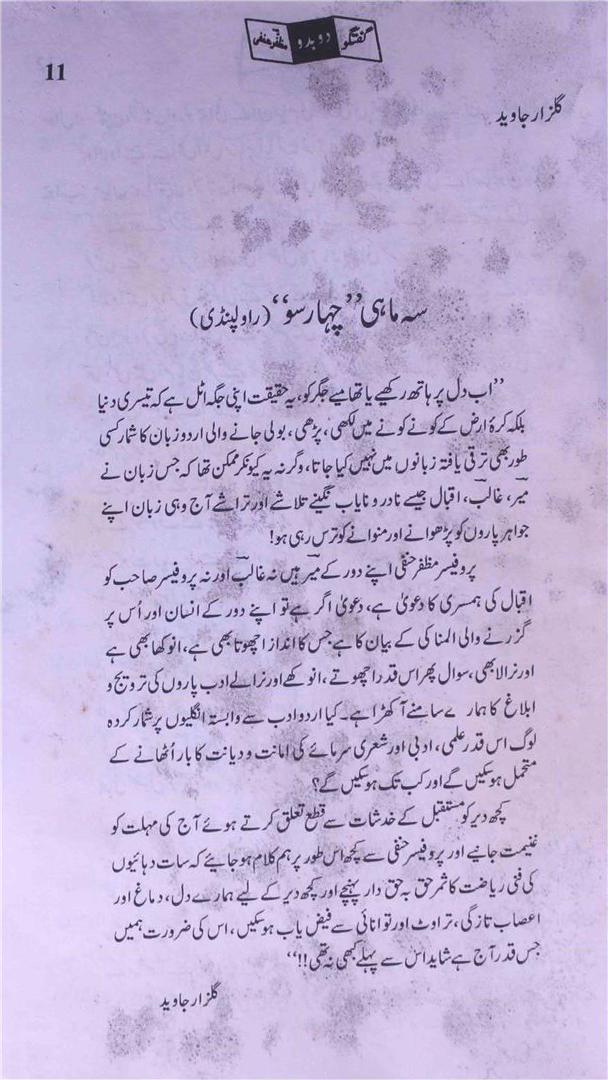 گفتگو دو بدو مظفر حنفی
11
گلزار جاوید
سہ ماہی ”چہار سو“ (راولپنڈی)
”اب دل پر ہاتھ رکھیے یا تھامیے جگر کو، یہ حقیقت اپنی جگہ اٹل ہے کہ تیسری دنیا
بلکہ کرۂ ارض کے کونے کونے میں لکھی، پڑھی، بولی جانے والی اردو زبان کا شمار کسی
طور بھی ترقی یافتہ زبانوں میں نہیں کیا جاتا، وگرنہ یہ کیونکر ممکن تھا کہ جس زبان نے
میر، غالب، اقبال جیسے نادر و نایاب نگینے تلاشے اور تراشے آج وہی زبان اپنے
جواہر پاروں کو پڑھوانے اور منوانے کو ترس رہی ہو!
پروفیسر مظفر حنفی اپنے دور کے میر ہیں نہ غالب اور نہ پروفیسر صاحب کو
اقبال کی ہمسری کا دعویٰ ہے، دعویٰ اگر ہے تو اپنے دور کے انسان اور اُس پر
گزرنے والی المناکی کے بیان کا ہے جس کا انداز اچھوتا بھی ہے، انوکھا بھی ہے
اور نرالا بھی، سوال پھر اس قدر اچھوتے، انوکھے اور نرالے ادب پاروں کی ترویج و
ابلاغ کا ہمارے سامنے آ کھڑا ہے۔ کیا اردو ادب سے وابستہ انگلیوں پر شمار کردہ
لوگ اس قدر علمی، ادبی اور شعری سرمائے کی امانت و دیانت کا بار اُٹھانے کے
متحمل ہو سکیں گے اور کب تک ہو سکیں گے؟
کچھ دیر کو مستقبل کے خدشات سے قطع تعلق کرتے ہوئے آج کی مہلت کو
غنیمت جانیے اور پروفیسر حنفی سے کچھ اس طور پر ہم کلام ہو جایئے کہ سات دہائیوں
کی فنی ریاضت کا ثمر حق بہ حق دار پہنچے اور کچھ دیر کے لیے ہمارے دل، دماغ اور
اعصاب تازگی، تراوٹ اور توانائی سے فیض یاب ہو سکیں، اس کی ضرورت ہمیں
جس قدر آج ہے شاید اس سے پہلے کبھی نہ تھی!!“
گلزار جاوید